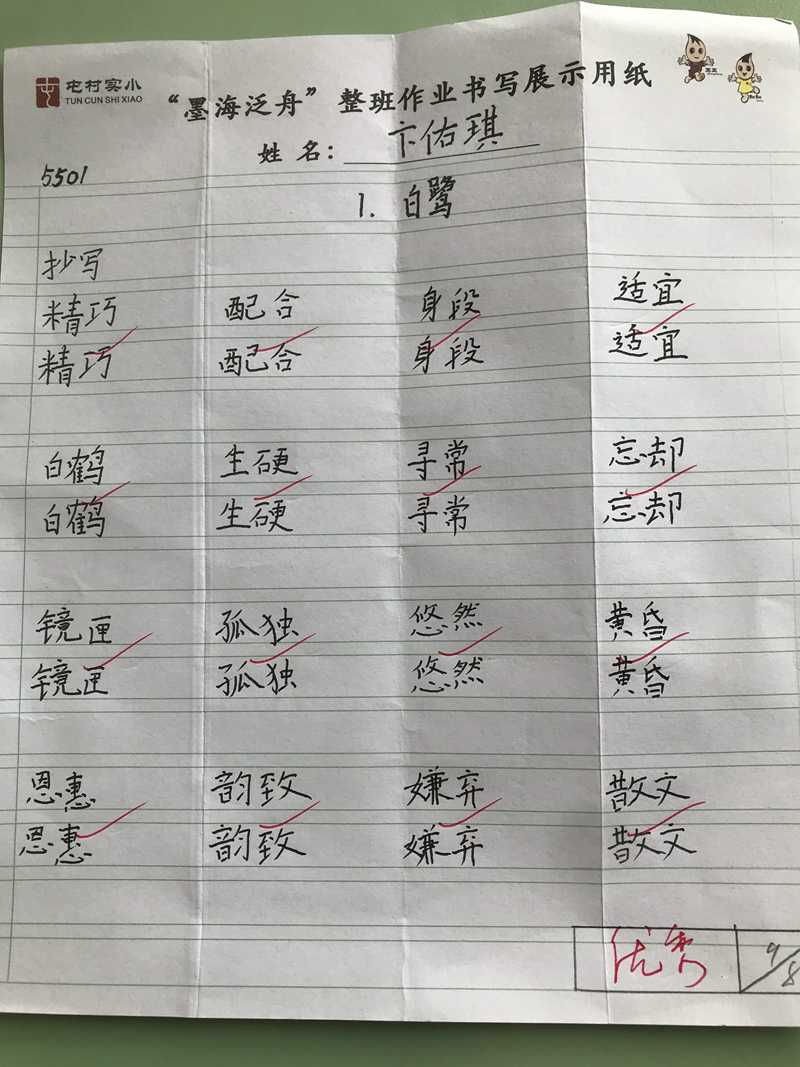 屯村实小
TUN CUN SHI XIAO
“墨海泛舟” 整班作业书写展示用纸
姓 名: 卞佑琪
5501
1. 白鹭
抄写
精巧 配合 身段 适宜
精巧 配合 身段 适宜
白鹤 生硬 寻常 忘却
白鹤 生硬 寻常 忘却
镜匣 孤独 悠然 黄昏
镜匣 孤独 悠然 黄昏
恩惠 韵致 嫌弃 散文
恩惠 韵致 嫌弃 散文
优秀 9/8